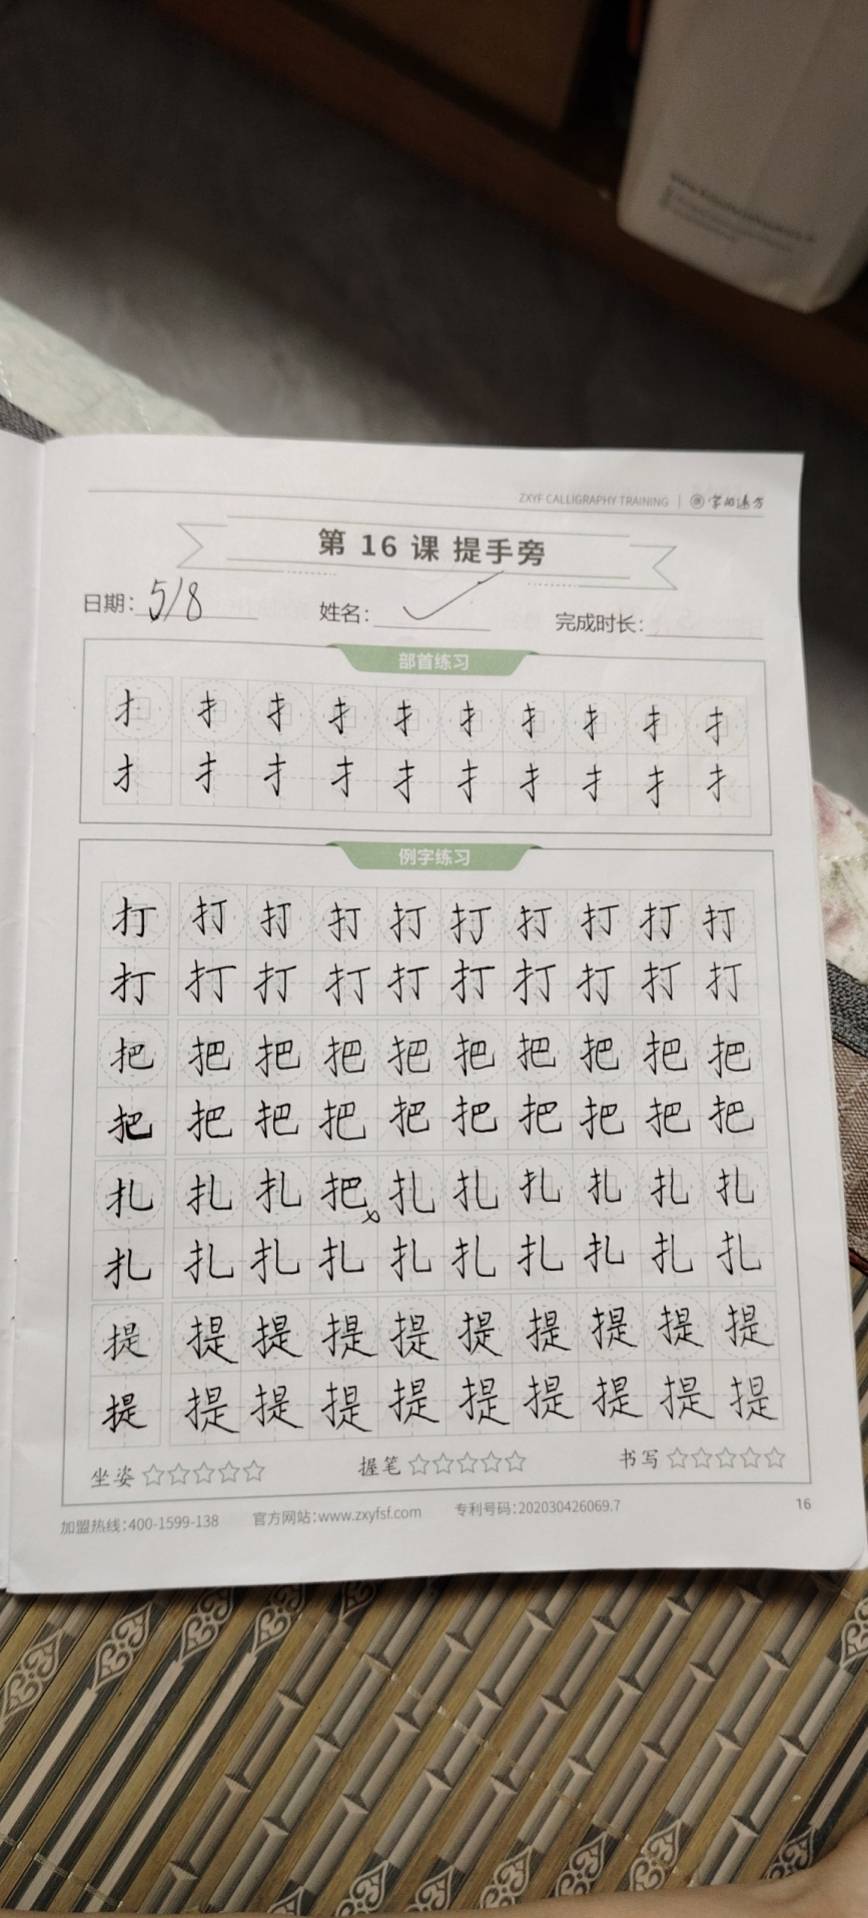 ZXYF CALLIGRAPHY TRAINING
第 16 课 提手旁
日期：5/8 姓名： 完成时长：
部首练习
扌 扌 扌 扌 扌 扌 扌 扌 扌 扌
扌 扌 扌 扌 扌 扌 扌 扌 扌 扌
例字练习
打 打 打 打 打 打 打 打 打 打
打 打 打 打 打 打 打 打 打 打
把 把 把 把 把 把 把 把 把 把
把 把 把 把 把 把 把 把 把 把
扎 扎 扎 把 扎 扎 扎 扎 扎 扎
扎 扎 扎 扎 扎 扎 扎 扎 扎 扎
提 提 提 提 提 提 提 提 提 提
提 提 提 提 提 提 提 提 提 提
坐姿 ☆☆☆☆☆ 握笔 ☆☆☆☆☆ 书写 ☆☆☆☆☆
加盟热线：400-1599-138 官方网站：www.zxyfsf.com 专利号码：202030426069.7 16